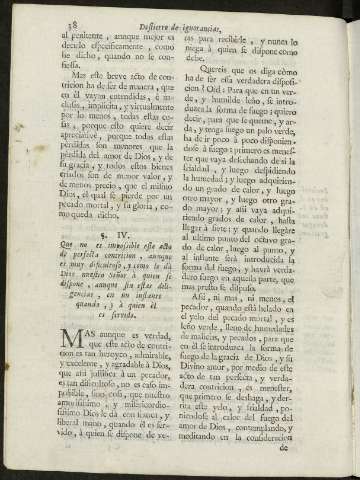 38 Destierro de ignorancias,
al penitente, aunque mejor es
decirlo especificamente, como
se dicho, quando no se con-
fiessa.
Mas este breve acto de con-
tricion ha de ser de manera, que
en él vayan entendidas, è in-
clusas, implicita, y virtualmente
por lo menos, todas estas co-
sas, porque esto quiere decir
apreciativè, porque todas estas
pérdidas son menores que la
pérdida del amor de Dios, y de
su gracia, y todos estos bienes
criados son de menor valor, y
de menos precio, que el mismo
Dios, el qual se pierde por un
pecado mortal, y su gloria, co-
mo queda dicho.
§. IV.
Que no es imposible este acto
de perfecta contricion, aunque
es muy dificultoso, y como le dà
Dios nuestro Señor à quien se
dispone, aunque sin estas dili-
gencias, en un instante
quando, y à quien él
es servido.
MAS aunque es verdad,
que este acto de contri-
cion es tan heroyco, admirable,
y excelente, y agradable à Dios,
que assi justifica à un pecador,
es tan dificultoso, no es caso im-
posible, sino cosa, que nuestro
amorosissimo, y misericordio-
sissimo Dios le dà con franca, y
liberal mano, quando él es ser-
vido, à quien se dispone de ve-
ras para recibirle, y nunca lo
niega à quien se dispone como
debe.
Quereis que os diga còmo
ha de ser essa verdadera disposi-
cion? Oíd: Para que en un ver-
de, y humilde leño, se intro-
duzca la forma de fuego; quiero
decir, para que se queme, y ar-
da, y tenga fuego un palo verde,
ha de ir poco à poco disponien-
dose à fuego: primero es menes-
ter que vaya desechando de sì la
frialdad, y luego despidiendo
la humedad; y luego adquirien-
do un grado de calor, y luego
otro mayor, y luego otro gra-
do mayor; y assi vaya adquí-
riendo grados de calor, hasta
llegar à siete: y quando llegàre
al ultimo punto del octavo gra-
do de calor, luego al punto, y
al instante serà introducida la
forma del fuego, y havrà verda-
dero fuego en aquella parte, que
mas presto se dispuso.
Assi, ni mas, ni menos, el
pecador, quando està helado en
el yelo del pecado mortal, y es
leño verde, lleno de humedades
de malicias, y pecados, para que
en él se introduzca la forma de
fuego de la gracia de Dios, y su
Divino amor, por medio de este
acto de tan perfecta, y verda-
dera contricion, es menester,
que primero se deshaga, y der-
rita este yelo, y frialdad, po-
niendose al calor del fuego del
amor de Dios, contemplando, y
meditando en la consideracion
de